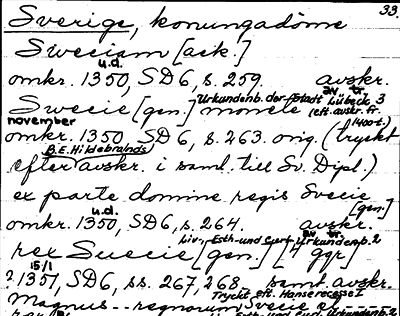 33.
Sverige, konungadöme
Sweciam [ack.]
u.d.
omkr. 1350, SD6, s. 259. avskr.
av tr.
Swecie [gen.] monete
Urkundenb. der Stadt Lübeck 3
(eft. avskr. fr.
1400-t.)
november
omkr. 1350, SD6, s. 263. orig. (tryckt
B.E. Hildebrands
efter avskr. i saml. till Sv. Dipl.)
ex parte domine regis Swecie
[gen.]
u.d.
omkr. 1350, SD6, s. 264. avskr.
av tr.
Liv-, Esth- und Curl. Urkundenb. 2
rex Suecie [gen.] [4 ggr]
15/1
?1351, SD6, ss. 267, 268. samt. avskr.
Tryckt eft. Hanserecesse I
Magnus -- regnorum Swecie et